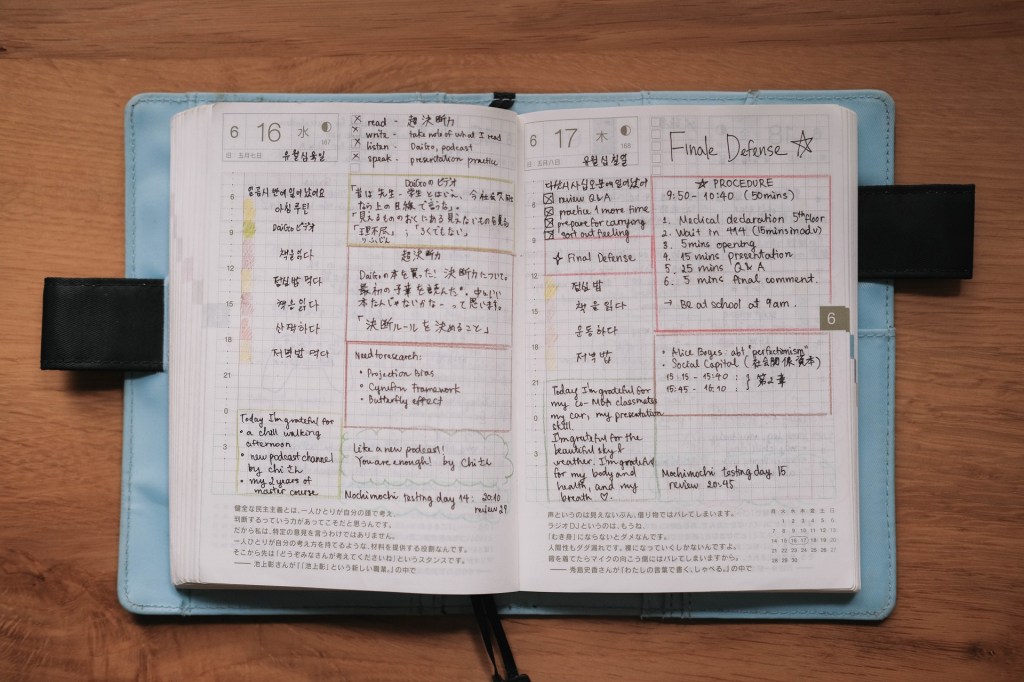 6 16 水
167
旧 五月七日
유월십육일
read - 超決断力
write - take note of what I read
listen - DaiGo, podcast
speak - presentation practice
6
아침 루틴
9
DaiGo ビデオ
책을 읽다
12
점심 밥 먹다
15
책을 읽다
산책하다
18
저녁밥 먹다
21
0
3
Today I'm grateful for
• a chill walking
afternoon
• new podcast channel
by chi さん
• my 2 years of
master course
DaiGoのビデオ
「理不尽」;「ろくでもない」
りふじん
超決断力
DaiGoの本を買った!決断力について。
「決断ルールを決めること」
Need to research:
• Projection Bias
• Cynefin Framework
• Butterfly effect
Like a new podcast!
You are enough! by Chi さん
Mochimochi testing day 14: 20:10
review 29
健全な民主主義とは、一人ひとりが自分の頭で考え、
判断するっていう力があってこそだと思うんです。
だから私は、特定の意見を言うわけではありません。
一人ひとりが自分の考え方を持てるような、材料を提供する役割なんです。
そこから先は「どうぞみなさんが考えてくださいね」というスタンスです。
── 池上彰さんが『「池上彰」という新しい職業。』の中で
6 17 木
168
旧 五月八日
유월십칠일
Finale Defense ☆
review Q&A
practice 1 more time
prepare for carrying
sort out feeling
☆ Final Defense
12
점심 밥
책을 읽다
15
운동하다
18
저녁 밥
21
0
3
Today I'm grateful for
my co-MBA classmates
my car, my presentation
skill.
I'm grateful for the
beautiful sky &
weather. I'm grateful
for my body and
health, and my
breath ♡.
☆ PROCEDURE
9:50 - 10:40 (50mins)
1. Medical declaration 5th floor
2. Wait in 494 (15mins in adv)
3. 5mins opening
4. 15 mins presentation
5. 25 mins Q & A
6. 5 mins final comment.
→ Be at school at 9am.
6
• Alice Boyes: abt "perfectionism"
• Social Capital (社会関係資本)
15:15 - 15:40 : } 第2章
15:45 - 16:10 :
Mochimochi testing day 15
review 20:45
声というのは見えないぶん、借り物ではバレてしまいます。
ラジオDJというのは、もうね、
「むき身」にならないとダメなんです。
人間性もダダ漏れです。裸になっていくしかないんですよ。
鎧を着てたらマイクの向こう側にはバレてしまいますから。
── 秀島史香さんが『わたしの言葉で書く、しゃべる。』の中で
月 火 水 木 金 土 日
1 2 3 4 5 6
7 8 9 10 11 12 13
14 15 16 17 18 19 20
21 22 23 24 25 26 27
28 29 30